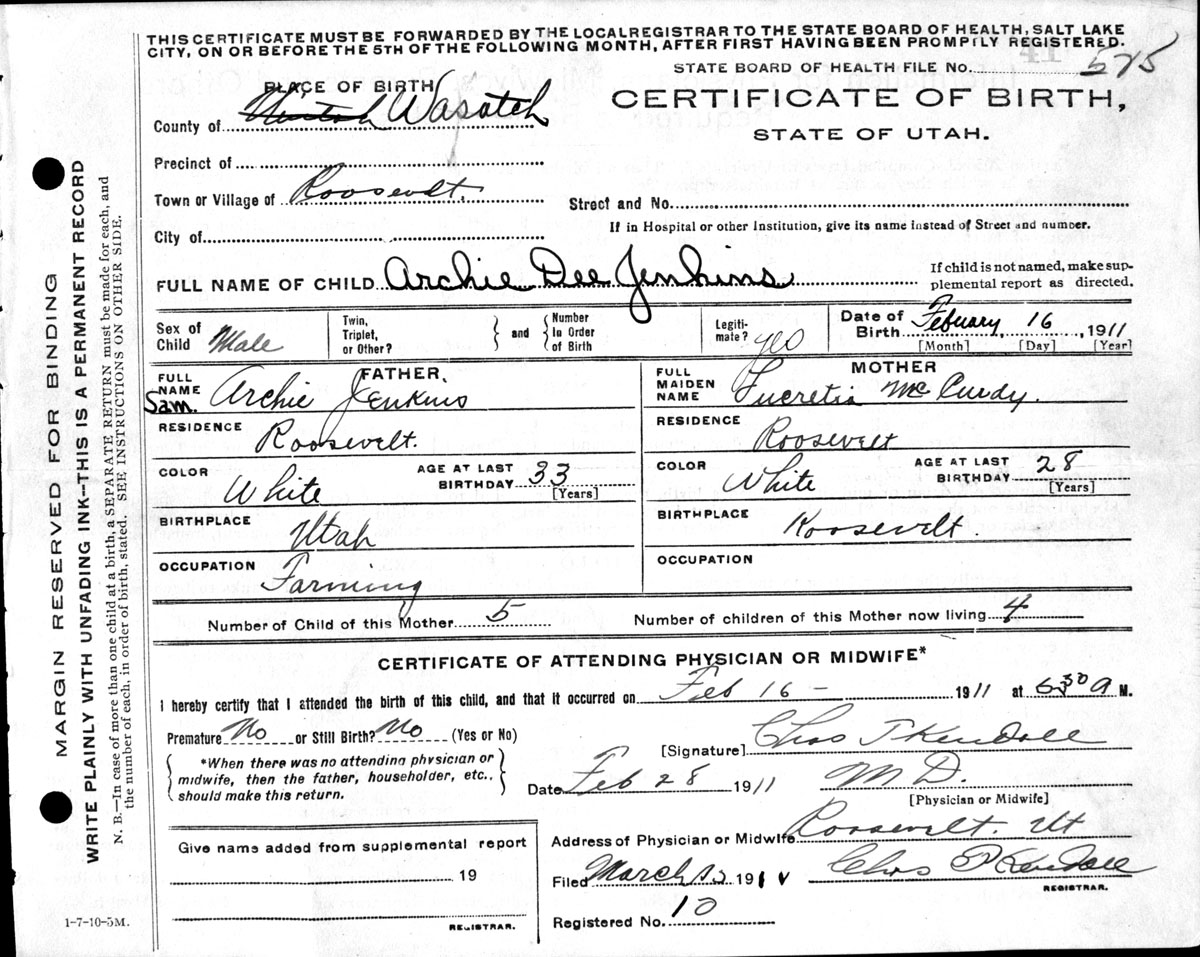 THIS CERTIFICATE MUST BE FORWARDED BY THE LOCAL REGISTRAR TO THE STATE BOARD OF HEALTH, SALT LAKE
CITY, ON OR BEFORE THE 5TH OF THE FOLLOWING MONTH, AFTER FIRST HAVING BEEN PROMPTLY REGISTERED.
STATE BOARD OF HEALTH FILE No. 575
PLACE OF BIRTH
CERTIFICATE OF BIRTH,
STATE OF UTAH.
County of Uintah Wasatch
Precinct of
Town or Village of Roosevelt.
Street and No.
City of
If in Hospital or other Institution, give its name instead of Street and number.
FULL NAME OF CHILD Archie Dee Jenkins
If child is not named, make sup-
plemental report as directed.
Sex of Child Male
Twin, Triplet, or Other?
and
Number In Order of Birth
Legiti-mate? yes
Date of Birth Febuary 16, 1911
[Month] [Day] [Year]
FATHER
FULL NAME Sam. Archie Jenkins
RESIDENCE Roosevelt.
COLOR White
AGE AT LAST BIRTHDAY 33
[Years]
BIRTHPLACE Utah
OCCUPATION Farming
MOTHER
FULL MAIDEN NAME Lucretia McCurdy.
RESIDENCE Roosevelt
COLOR White
AGE AT LAST BIRTHDAY 28
[Years]
BIRTHPLACE Roosevelt.
OCCUPATION
Number of Child of this Mother 5
Number of children of this Mother now living 4
CERTIFICATE OF ATTENDING PHYSICIAN OR MIDWIFE*
I hereby certify that I attended the birth of this child, and that it occurred on Feb 16 - 1911 at 6 30 a M.
Premature No or Still Birth? No (Yes or No)
[Signature] Chas J Kendall
*When there was no attending physician or
midwife, then the father, householder, etc.,
should make this return.
Date Feb 28 1911
M D.
[Physician or Midwife]
Address of Physician or Midwife Roosevelt. Ut
Give name added from supplemental report
19
REGISTRAR.
Filed March 191
Kendall
REGISTRAR.
Registered No. 10
1-7-10-5M.
MARGIN RESERVED FOR BINDING
WRITE PLAINLY WITH UNFADING INK--THIS IS A PERMANENT RECORD
N. B.—In case of more than one child at a birth, a SEPARATE RETURN must be made for each, and
the number of each, in order of birth, stated. SEE INSTRUCTIONS ON OTHER SIDE.